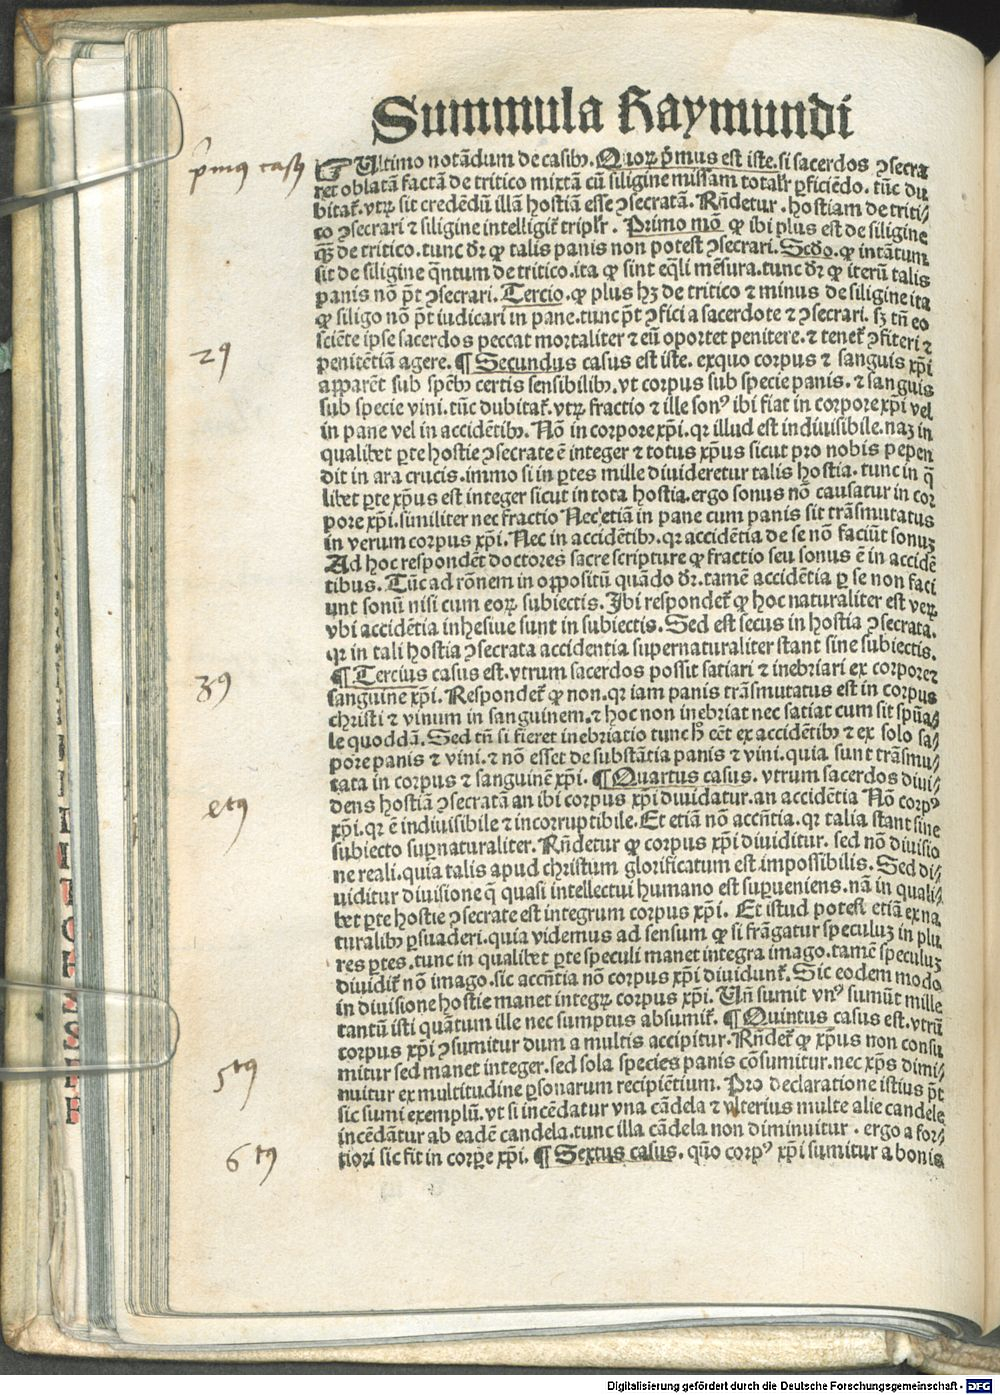 Summula Raymundi
p̄mus casꝰ
¶ Ultimo notādum de casibꝫ. Quoꝝ p̄mus est iste. si sacerdos ꝯsecra
ret oblatā factā de tritico mixtā cū siligine missam totalr̄ ꝑficiēdo. tūc du
bitat̄. vtꝝ sit credēdū illā hostiā esse ꝯsecratā. Rn̄detur. hostiam de triti⸗
co ꝯsecrari ⁊ siligine intelligit̄ triplr̄. Primo mō ꝙ ibi plus est de siligine
qꝫ de tritico. tunc dr̄ ꝙ talis panis non potest ꝯsecrari. Scdo. ꝙ intātum
sit de siligine q̄ntum de tritico. ita ꝙ sint eq̄li mēsura. tunc dr̄ ꝙ iterū talis
panis nō p̄t ꝯsecrari. Tercio. ꝙ plus hꝫ de tritico ⁊ minus de siligine ita
ꝙ siligo nō p̄t iudicari in pane. tunc p̄t ꝯfici a sacerdote ⁊ ꝯsecrari. sꝫ tn̄ eo
sciēte ipse sacerdos peccat mortaliter ⁊ eū oportet penitere. ⁊ tenet̄ ꝯfiteri ⁊
2ꝰ
penitētiā agere. ¶ Secundus casus est iste. exquo corpus ⁊ sanguis xp̄i
apparēt sub spēbꝫ certis sensibilibꝫ. vt corpus sub specie panis. ⁊ sanguis
sub specie vini. tūc dubitat̄. vtꝝ fractio ⁊ ille sonꝰ ibi fiat in corpore xp̄i vel
in pane vel in accidētibꝫ. Nō in corpore xp̄i. qr illud est indiuisibile. naꝫ in
qualibet ꝑte hostie ꝯsecrate ē integer ⁊ totus xp̄us sicut pro nobis pepen
dit in ara crucis. immo si in ꝑtes mille diuideretur talis hostia. tunc in q̄
libet ꝑte xp̄us est integer sicut in tota hostia. ergo sonus nō causatur in cor
pore xp̄i. similiter nec fractio Nec etiā in pane cum panis sit trāsmutatus
in verum corpus xp̄i. Nec in accidētibꝫ. qr accidētia de se nō faciūt sonuꝫ
Ad hoc respondēt doctores sacre scripture ꝙ fractio seu sonus ē in accidē
tibus. Tūc ad rōnem in oppositū quādo dr̄. tamē accidētia ꝑ se non faci
unt sonū nisi cum eoꝝ subiectis. Ibi respondet̄ ꝙ hoc naturaliter est veꝝ
vbi accidētia inhesiue sunt in subiectis. Sed est secus in hostia ꝯsecrata.
qr in tali hostia ꝯsecrata accidentia supernaturaliter stant sine subiectis.
3ꝰ
¶ Tercius casus est. vtrum sacerdos possit satiari ⁊ inebriari ex corpore ⁊
sanguine xp̄i. Respondet̄ ꝙ non. qr iam panis trāsmutatus est in corpus
christi ⁊ vinum in sanguinem. ⁊ hoc non inebriat nec satiat cum sit spūa⸗
le quoddā. Sed tn̄ si fieret inebriatio tunc h̄ eēt ex accidētibꝫ ⁊ ex solo sa⸗
pore panis ⁊ vini. ⁊ nō esset de substātia panis ⁊ vini. quia sunt trāsmu⸗
tata in corpus ⁊ sanguinē xp̄i. ¶ Quartus casus. vtrum sacerdos diui⸗
4tꝰ
dens hostiā ꝯsecratā an ibi corpus xp̄i diuidatur. an accidētia Nō corpꝰ
xp̄i. qr ē indiuisibile ⁊ incorruptibile. Et etiā nō accn̄tia. qr talia stant sine
subiecto suꝑnaturaliter. Rn̄detur ꝙ corpus xp̄i diuiditur. sed nō diuisio
ne reali. quia talis apud christum glorificatum est impossibilis. Sed di⸗
uiditur diuisione q̄ quasi intellectui humano est suꝑueniens. nā in quali⸗
bet ꝑte hostie ꝯsecrate est integrum corpus xp̄i. Et istud potest etiā ex na
turalibꝫ ꝑsuaderi. quia videmus ad sensum ꝙ si frāgatur speculuꝫ in plu
res ꝑtes. tunc in qualibet ꝑte speculi manet integra imago. tamē speculuꝫ
diuidit̄ nō imago. sic accn̄tia nō corpus xp̄i diuidunt̄. Sic eodem modo
in diuisione hostie manet integꝝ corpus xp̄i. Un̄ sumit vnꝰ sumūt mille
tantū isti quātum ille nec sumptus absumit̄. ¶ Quintus casus est. vtrū
5tꝰ
corpus xp̄i ꝯsumitur dum a multis accipitur. Rn̄det̄ ꝙ xp̄us non consu
mitur sed manet integer. sed sola species panis cōsumitur. nec xp̄s dimi⸗
nuitur ex multitudine ꝑsonarum recipiētium. Pro declaratione istius p̄t
sic sumi exemplū. vt si incēdatur vna cādela ⁊ vlterius multe alie candele
incēdātur ab eadē candela. tunc illa cādela non diminuitur. ergo a for⸗
6tꝰ
tiori sic fit in corꝑe xp̄i. ¶ Sextus casus. quō corpꝰ xp̄i sumitur a bonis
Digitalisierung gefördert durch die Deutsche Forschungsgemeinschaft - DFG